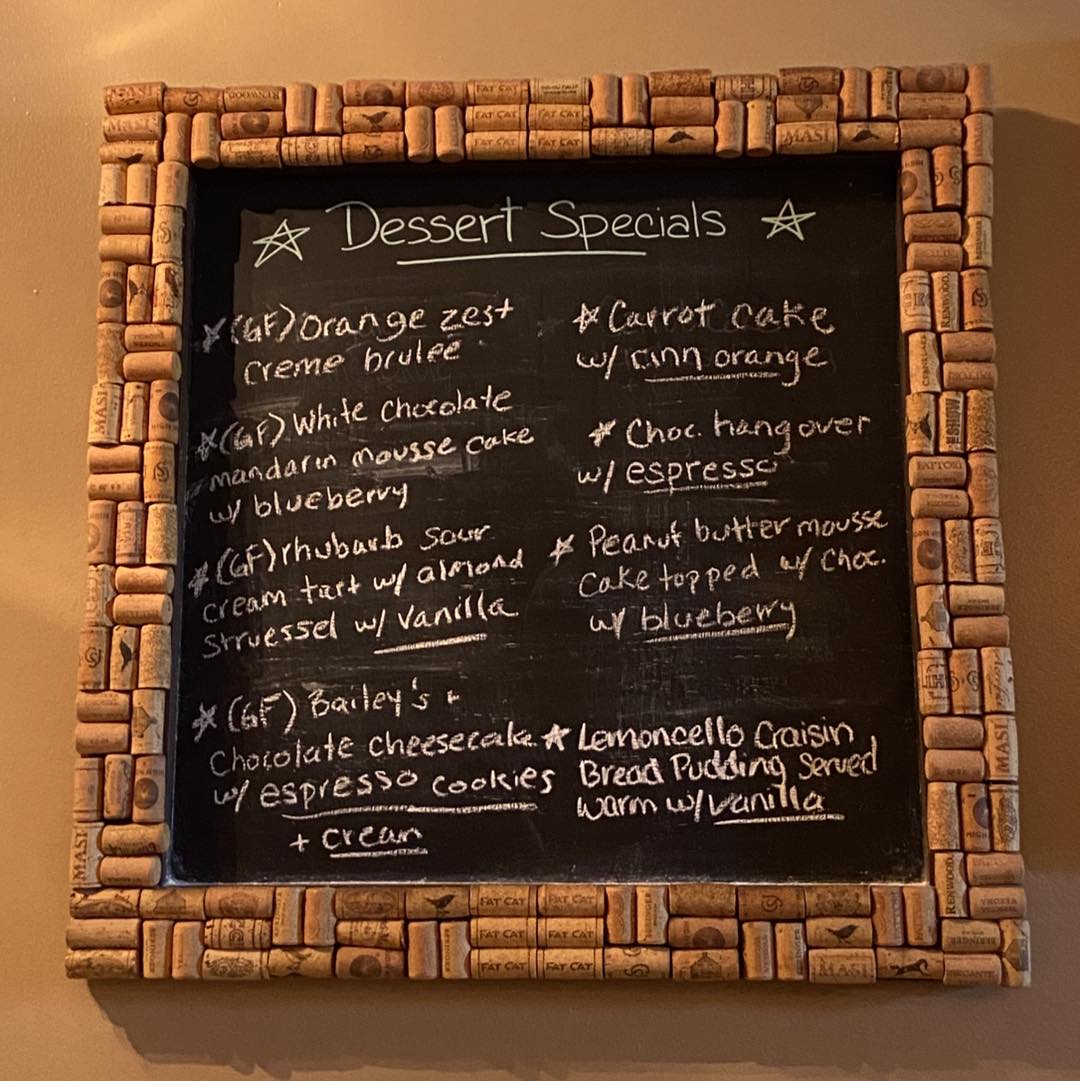 Dessert Specials
(GF) Orange zest
creme brulee
(GF) White Chocolate
mandarin mousse cake
w/ blueberry
(GF) rhubarb sour
cream tart w/ almond
struessel w/ vanilla
(GF) Bailey's +
Chocolate cheesecake
w/ espresso cookies
+ cream
Carrot cake
w/ cinn orange
Choc. hangover
w/ espresso
Peanut butter mousse
cake topped w/ choc.
w/ blueberry
Lemoncello Craisin
Bread Pudding Served
warm w/ vanilla
MASI
RENWOOD
FAT CAT
FAT CAT
FAT CAT
FAT CAT
FAT CAT
MASI
MASI
MASI
RENWOOD
FATTORI
MASI
MASI
RENWOOD
FAT CAT
FAT CAT
FAT CAT
FAT CAT
FAT CAT
FAT CAT
BERINGER
MASI